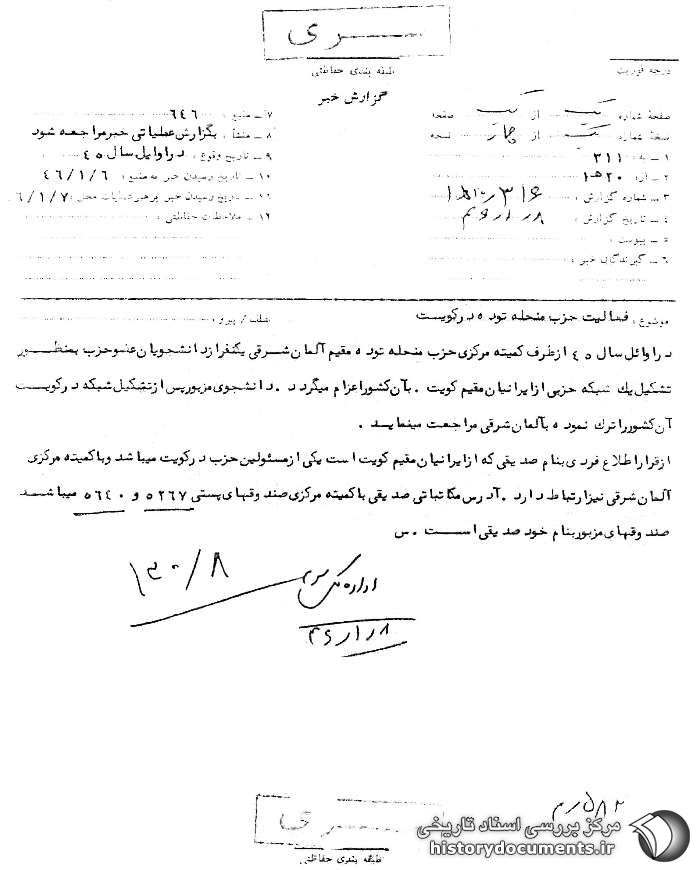 ســـری
طبقه بندی حفاظتی
درجه فوریت
گزارش خبر
صفحه شماره یک از یک صفحه
نسخه شماره یک از چهار نسخه
۱ـ به: ۳۱۱
۲ـ از: ۲۰ هـ ۱
۳ـ شماره گزارش:
۴ـ تاریخ گزارش:
۵ـ پیوست:
۶ـ گیرندگان خبر:
۷ـ منبع: ۶۴۶
۸ـ منشأ: بگزارش عملیاتی خبر مراجعه شود
۹ـ تاریخ وقوع: در اوایل سال ۴۵
۱۰ـ تاریخ رسیدن خبر به منبع: ۴۶/۱/۶
۱۱ـ تاریخ رسیدن خبر برهبر عملیات محل: ۶/۱/۷
۱۲ـ ملاحظات حفاظتی:
موضوع: فعالیت حزب منحله توده در کویت
عطف / پیرو:
در اوائل سال ۴۵ از طرف کمیته مرکزی حزب منحله توده مقیم آلمان شرقی یکنفر از دانشجویان عضو حزب بمنظور
تشکیل یك شبکه حزبی از ایرانیان مقیم کویت ۰ بآن کشور اعزام میگردد ۰ دانشجوی مزبور پس از تشکیل شبکه در کویت
آن کشور را ترك نموده بآلمان شرقی مراجعت مینماید ۰
از قرار اطلاع فردی بنام صدیقی که از ایرانیان مقیم کویت است یکی از مسئولین حزب در کویت میباشد و با کمیته مرکزی
آلمان شرقی نیز ارتباط دارد ۰ آدرس مکاتباتی صدیقی با کمیته مرکزی صندوقهای پستی ۵۲۶۷ و ۵۶۴۰ میباشد
صندوقهای مزبور بنام خود صدیقی است ۰ س
۱۳۰/۸
اداره کل سوم
۴۶/۱/۸
ســـری
طبقه بندی حفاظتی
مرکز بررسی اسناد تاریخی
historydocuments.ir